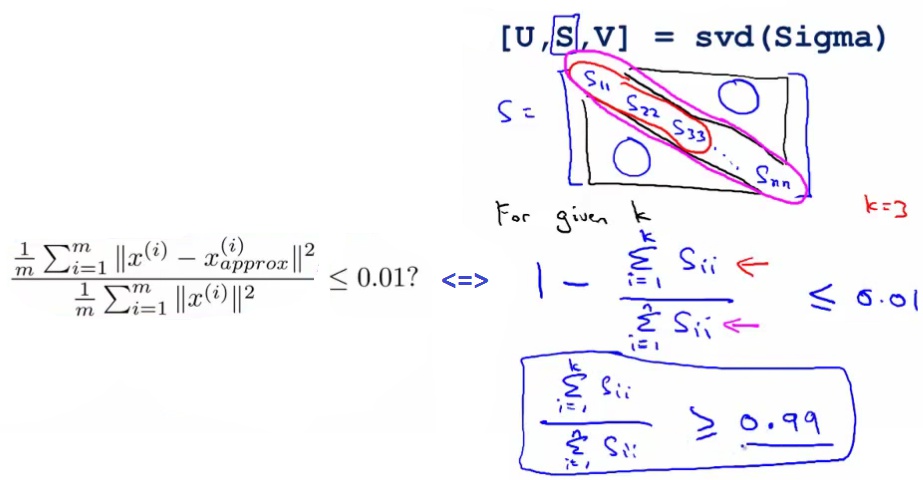 [U,S,V] = svd(Sigma)
S = [S₁₁ S₂₂ S₃₃ .... Sₙₙ]
For given k
k=3
\frac{\frac{1}{m}\sum_{i=1}^{m}\|x^{(i)} - x_{approx}^{(i)}\|^2}{\frac{1}{m}\sum_{i=1}^{m}\|x^{(i)}\|^2} \leq 0.01?
<=>
1 - \frac{\sum_{i=1}^{k} S_{ii}}{\sum_{i=1}^{n} S_{ii}} \leq 0.01
\frac{\sum_{i=1}^{k} S_{ii}}{\sum_{i=1}^{n} S_{ii}} \geq 0.99